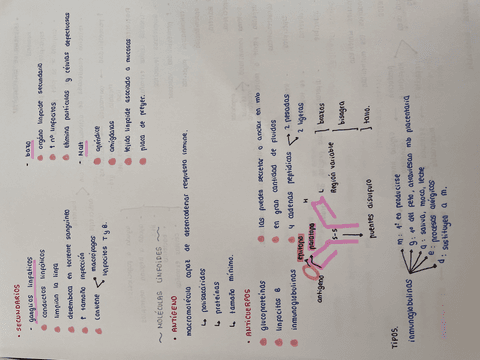 • SECUNDARIOS
• ganglios linfáticos
conductos linfáticos
limpian la linfa
desemboca en torrente sanguíneo
↑ tamaño infección
contiene
macrófagos
linfocitos T y B.
• bazo
órgano linfoide secundario
↑ nº linfocitos
elimina partículas y células defectuosas
• MALT
apéndice
amígdalas
tejido linfoide asociado a mucosas
placa de peyer.
~ MOLÉCULAS UNIDADES ~
• ANTÍGENO
macromolécula capaz de desencadenar respuesta inmune.
↳ polisacáridos
↳ proteínas
↳ tamaño mínimo.
• ANTICUERPOS
glicoproteínas
linfocitos B
inmunoglobulinas
las puedes secretar o anclar en mb
en gran cantidad de fluidos
4 cadenas peptídicas
2 pesadas
2 ligeras
epítopo
paratopo
antígeno
H
L
S-S
Región variable
brazos
bisagra
puentes disulfuro
TIPOS.
inmunoglobulinas
m: 1ª en producirse
g: 1ª del feto, atraviesan mb placentaria
a: saliva, moco, leche
e: procesos alérgicos
d: sustituye a m.